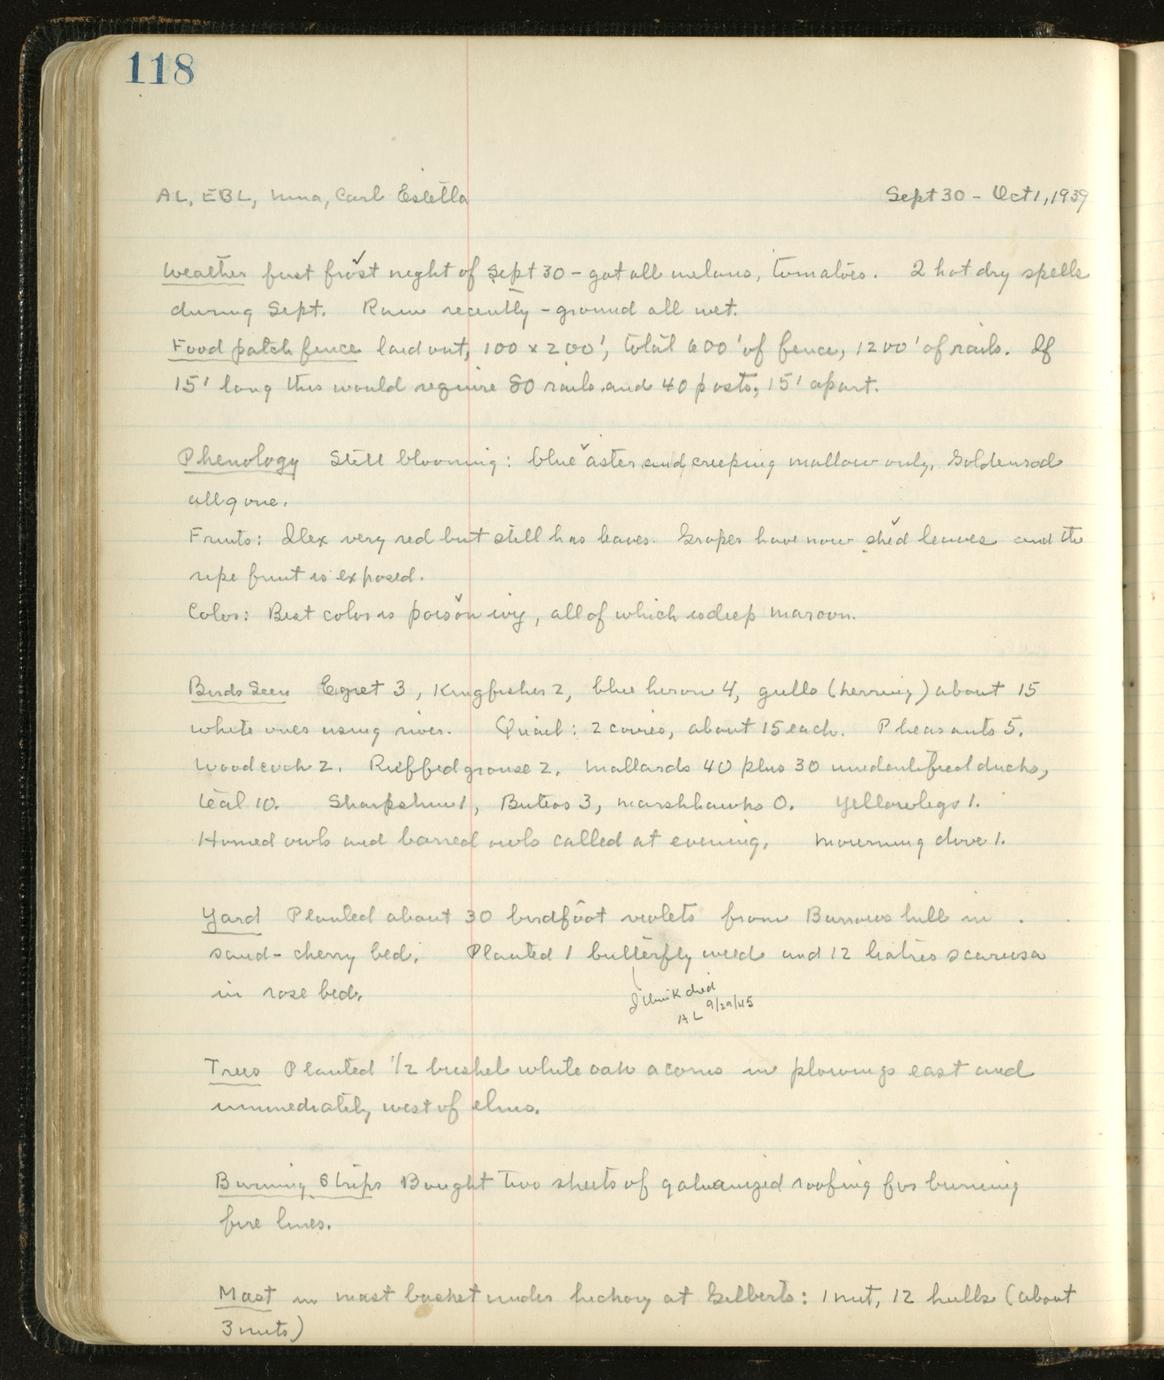 118
AL, EBL, Nina, Carl Estella Sept 30 - Oct 1, 1939
Weather first frost night of Sept 30 - got all melons, tomatoes. 2 hot dry spells
during Sept. Rain recently - ground all wet.
Food patch fence laid out, 100 x 200', total 600' of fence, 1200' of rails. If
15' long this would require 80 rails and 40 posts, 15' apart.
Phenology Still blooming: blue aster and creeping mallow only. Goldenrod
all gone.
Fruits: Ilex very red but still has leaves. Grapes have now shed leaves and the
ripe fruit is exposed.
Color: Best color is poison ivy, all of which is deep maroon.
Birds Seen Egret 3, Kingfisher 2, blue heron 4, gulls (herring) about 15
white ones using river. Quail: 2 covies, about 15 each. Pheasants 5.
Woodcock 2. Ruffed grouse 2. Mallards 40 plus 30 unidentified ducks,
teal 10. Sharpshin 1, Buteos 3, marshhawks 0. Yellowlegs 1.
Horned owls and barred owls called at evening. Mourning dove 1.
Yard Planted about 30 birdfoot violets from Burrows hill in
sand-cherry bed. Planted 1 butterfly weed and 12 liatris scariosa
in rose bed.
I think died
AL 9/29/45
Trees Planted 1/2 bushel white oak acorns in plowings east and
immediately west of elms.
Burning Strips Bought two sheets of galvanized roofing for burning
fire lines.
Mast in mast basket under hickory at Gilberts: 1 nut, 12 hulls (about
3 nuts)